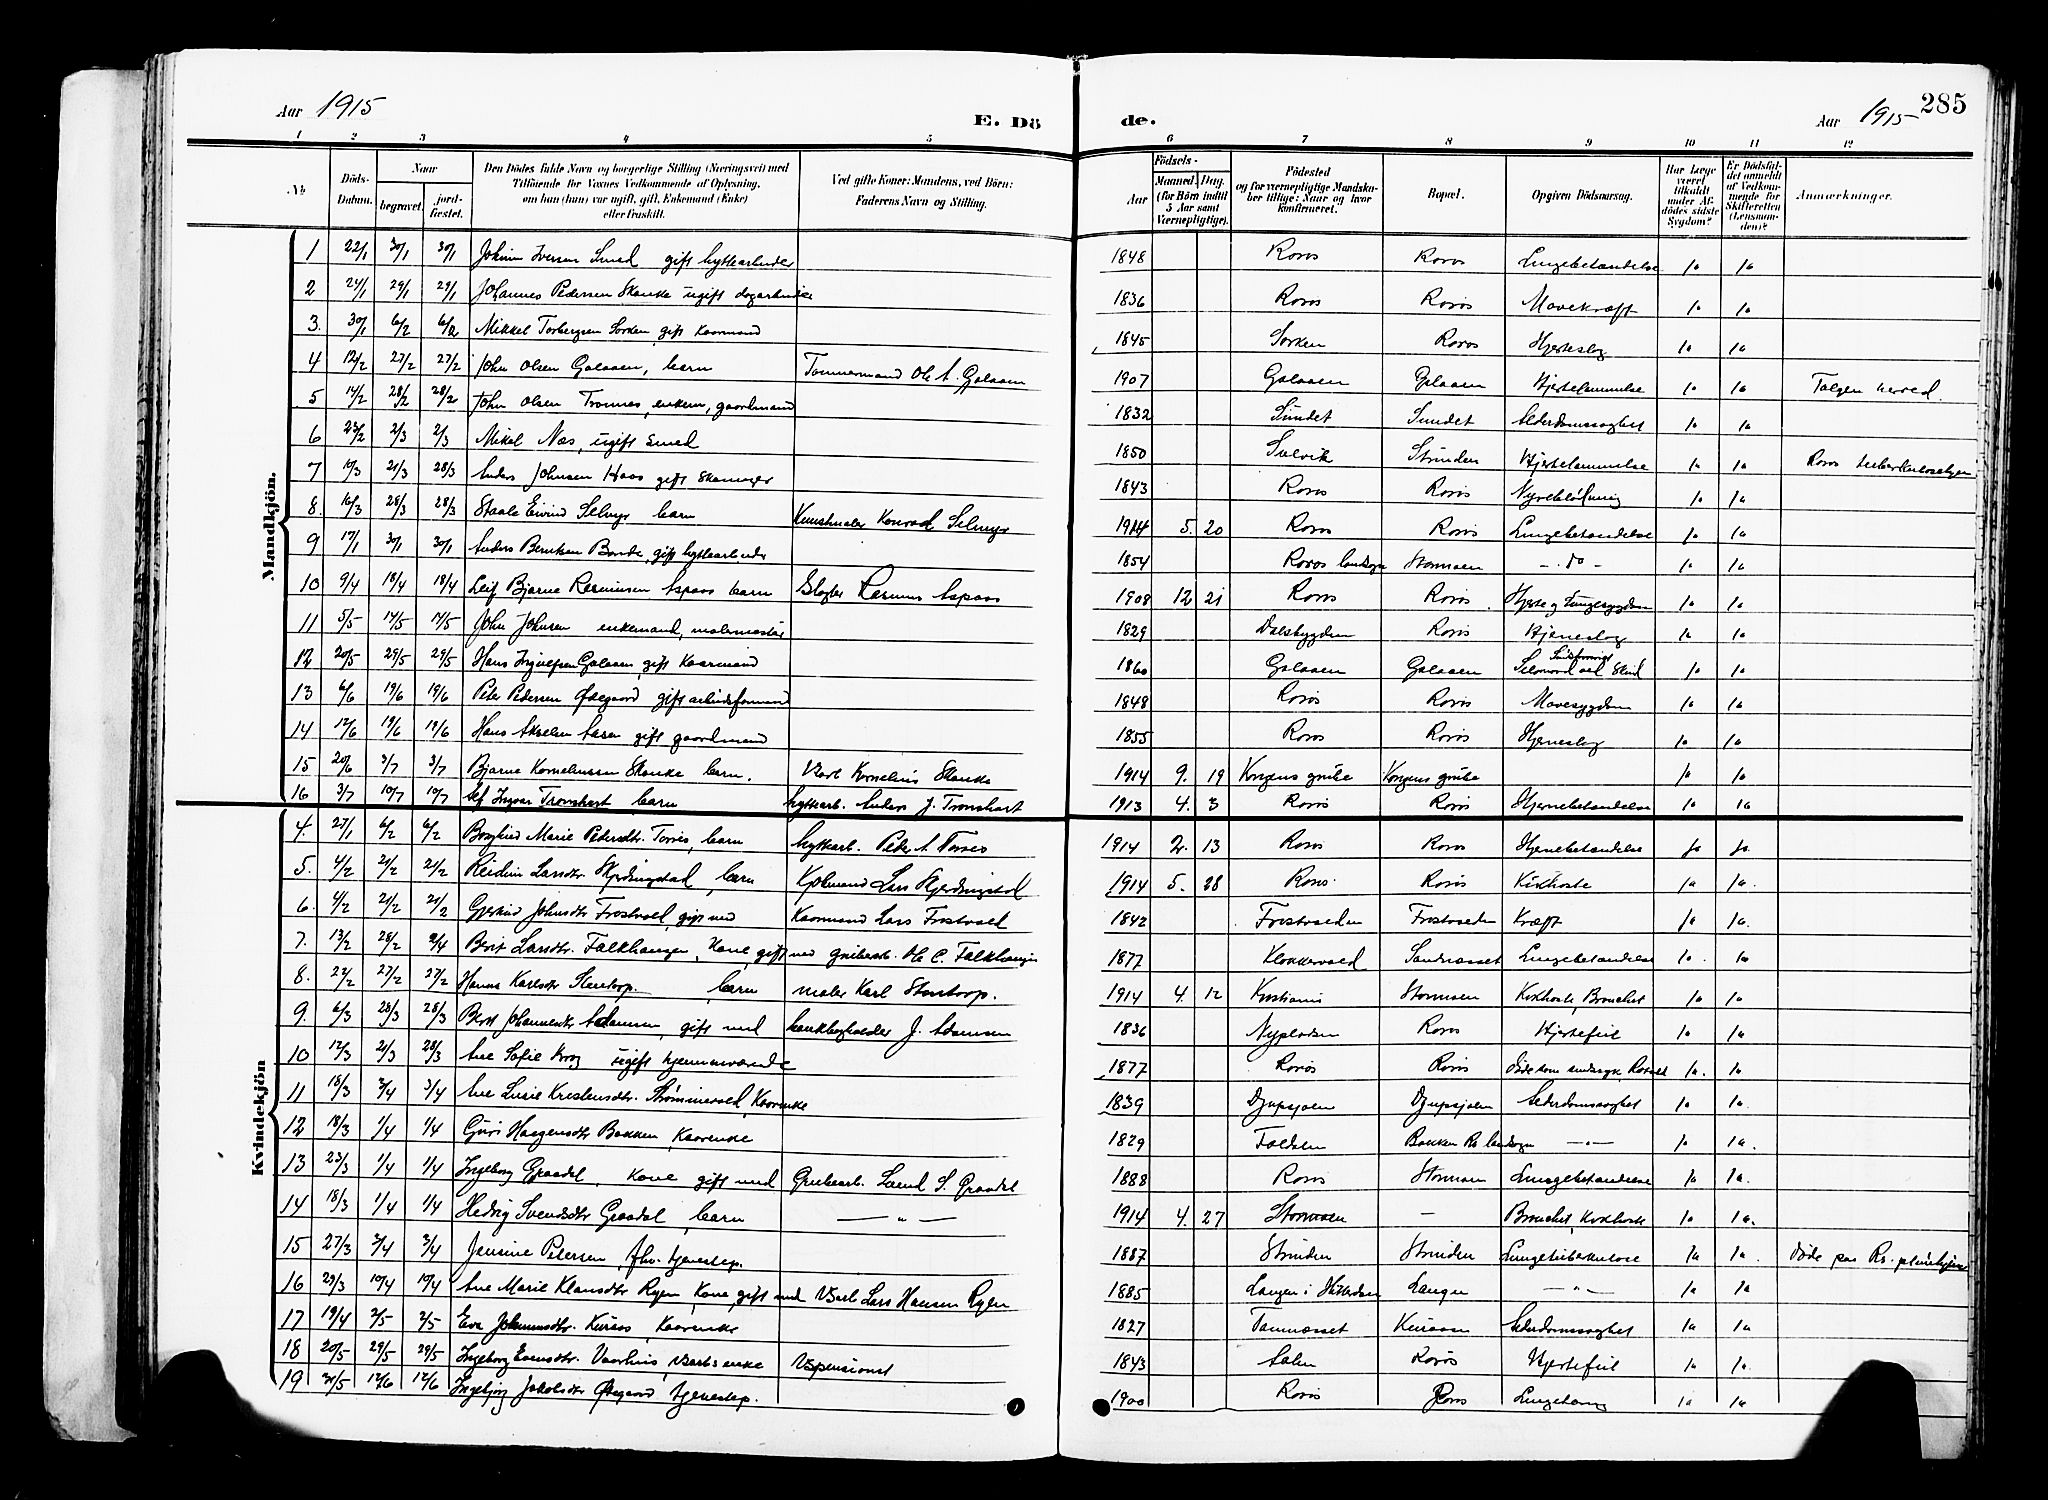 Aar 1915
E. Dö
de.
Aar 1915
285
1 2 3 4 5
6 7 8 9 10 11 12
№
Döds-Datum.
Naar
begravet.
jord-fæstet.
Den Dödes fulde Navn og borgerlige Stilling (Næringsvei) med
Tilföiende for Voxnes Vedkommende af Oplysning,
om han (hun) var ugift, gift, Enkemand (Enke)
eller fraskilt.
Ved gifte Koner: Mandens, ved Börn:
Faderens Navn og Stilling.
Födsels-
Aar
Maaned. Dag.
(for Börn indtil
5 Aar samt
Værnepligtige).
Födested
og for værnepligtige Mandska-
ber tillige: Naar og hvor
konfirmeret.
Bopæl.
Opgiven Dödsaarsag.
Har Læge
været
tilkaldt
under Af-
dödes sidste
Sygdom?
Er Dödsfal-
det anmeldt
af Vedkom-
mende for
Skifteretten
(Lensman-
den)?
Anmærkninger.
Mandkjön.
1 22/1 30/1 30/1 Johann Iversen Smed gift hyttearbeider 1848 Røros Røros Lungebetændelse ja ja
2 24/1 29/1 29/1 Johannes Pedersen Skanke ugift dagarbeider 1836 Røros Røros Mavekræft ja ja
3. 30/1 6/2 6/2 Mikkel Torbergsen Sorken, gift Kaarmand 1845 Sorken Røros Hjerteslag ja ja
4 12/2 27/2 27/2 John Olsen Galaaen, barn Tømmermand Ole A. Galaaen 1907 Galaaen Galaaen Hjertelammelse ja ja Tolgen herred.
5 14/2 28/2 28/2 John Olsen Tronnes, enkem, gaardmand 1832 Sundet Sundet Alderdomssvaghet ja ja
6 23/2 2/3 2/3 Mikal Næs, ugift smed 1850 Selvik Strinden Hjertelammelse ja ja Røros tuberkulosehjem
7 10/3 21/3 28/3 Anders Johnsen Haas gift Skomager 1843 Røros Røros Nyreblødning ja ja
8. 16/3 28/3 28/3 Staale Eivind Selmyr barn Kunstmaler Konrad Selmyr 1914 5. 20 Røros Røros Lungebetændelse ja ja
9 17/1 30/1 30/1 Anders Berntsen Borde, gift hyttearbeider 1854 Røros landsogn Stormoen - do - ja ja
10 9/4 18/4 18/4 Leif Bjarne Rasmusen Aspaas barn Slagter Rasmus Aspaas 1908 12 21 Røros Røros Hjerte og Lungesygdom ja ja
11 5/5 14/5 14/5 John Johnsen enkemand, malermester 1829 Dalsbygden Røros Hjerneslag ja ja
12 20/5 29/5 29/5 Hans Ingvelfsen Galaaen, gift Kaarmand 1860 Galaaen Galaaen Selvmord ved Skud ja ja
13 6/6 19/6 19/6 Peter Pedersen Ødegaard gift arbeidsformand 1848 Røros Røros Mavesygdom ja ja
14 12/6 19/6 19/6 Hans Akselsen Aasen gift gaardmand 1855 Røros Røros Hjerneslag ja ja
15 20/6 3/7 3/7 Bjarne Korneliussen Skanke barn. Varb Kornelius Skanke 1914 9. 19 Kongens grube Kongens grube ja ja
16 3/7 10/7 10/7 Alf Ingvar Tronshart barn hyttearb. Anders J. Tronshart 1913 4. 3 Røros Røros Hjernebetændelse ja ja
Kvindekjön
4. 27/1 6/2 6/2 Borghild Marie Pedersdtr Torres, barn hyttearb. Peder A Torres 1914 2. 13 Røros Røros Hjernebetændelse ja ja.
5. 4/2 21/2 21/2 Reidun Larsdtr. Hjerdingstad, barn Kjølmand Lars Hjerdingstad 1914 5. 28 Røros Røros Kikhoste ja ja.
6. 4/2 21/2 21/2 Gjertrud Johnsdtr Frostvold, gift med Kaarmand Lars Frostvold 1842 Frostvolden Frostvolden Kræft ja ja.
7. 13/2 28/2 2/4 Berit Larsdtr. Falkhaugen, Kone, gift med grubearb. Ole C. Falkhaugen 1877 Klokkervold Sandnæsset Lungebetændelse ja. ja
8. 22/2 27/2 27/2 Hanna Karlsdtr Stentorp. barn maler Karl Stentorp. 1914 4. 12 Kristiania Stormoen Kikhoste, Bronchit ja ja.
9. 6/3 28/3 28/3 Berit Johannesdtr Adamsen, gift med bankbogholder J. Adamsen 1836 Nyplassen Røros Hjertefeil ja ja.
10 12/3 21/3 28/3 Ane Sofie Krog ugift hjemmeværende 1877 Røros Røros Døde som sindssyk, Rotvold ja. ja
11 18/3 3/4 3/4 Ane Lusie Krestensdtr. Strømmevold, Kaarenke 1839 Djupsjøen Djupsjøen Alderdomssvaghet ja ja.
12 18/3 1/4 1/4 Guri Haagensdtr Bakken, Kaarenke 1829 Foldalen Bakken Rø. landsogn —"— ja ja.
13 23/3 1/4 1/4 Ingeborg Graadal, Kone gift med Grubearb. Svend S. Graadal 1888 Røros Stormoen Lungebetændelse ja ja.
14 18/3 1/4 1/4 Hedvig Svendsdtr Graadal, barn — " — 1914 4. 27 Stormoen — Bronchit, Kikhoste ja ja.
15 27/3 3/4 3/4 Jensine Petersen, fhv. tjenestep. 1887 Strinden Strinden Lungetuberkulose ja ja. Døde paa Rø. pleiehjem
16 29/3 10/4 10/4 Ane Marie Klausdtr Ryen, Kone, gift med Varb Lars Hansen Ryen 1885 Langen i Hitterdalen Langen —"— ja ja
17 19/4 2/5 2/5 Eva Johannesdtr. Kuraas, Kaarenke 1827 Tamnesset Kuraasen Alderdomssvaghet ja ja
18 20/5 29/5 29/5 Ingeborg Evensdtr. Vaarhus, Varbs enke Vpensionist 1843 Aalen Røros Hjertefeil ja ja.
19 31/5 12/6 12/6 Ingebjørg Jakobsdtr Ødegaard tjenestep. 1900 Røros Røros Lungetæring ja ja